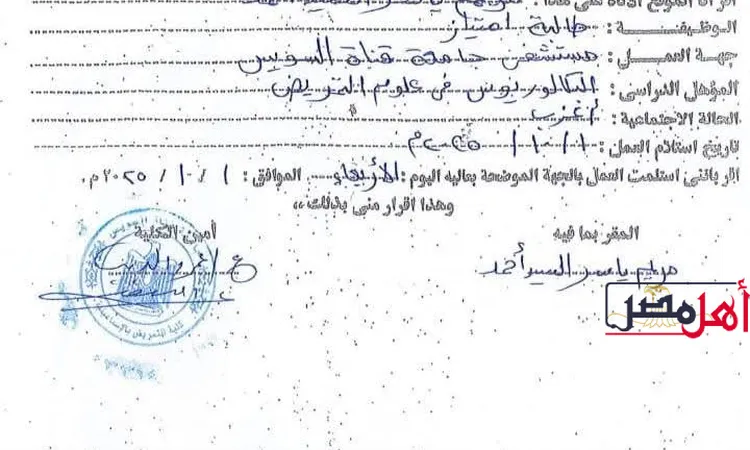 الوظيفة : طالبة امتياز
جهة العمل : مستشفى جامعة قناة السويس
المؤهل الدراسى : البكالوريوس فى علوم التمريض
الحالة الاجتماعية : أعزب
تاريخ استلام العمل : ١ / ١٠ / ٢٠٢٥م
اقر باننى استلمت العمل بالجهة الموضحة بعاليه اليوم : الأربعاء الموافق : ١ / ١٠ / ٢٠٢٥م.
وهذا اقرار منى بذلك ،،
المقر بما فيه
أمين الكلية
مريم ياسر السيد أحمد
أهل مصر
كلية التمريض بالإسماعيلية